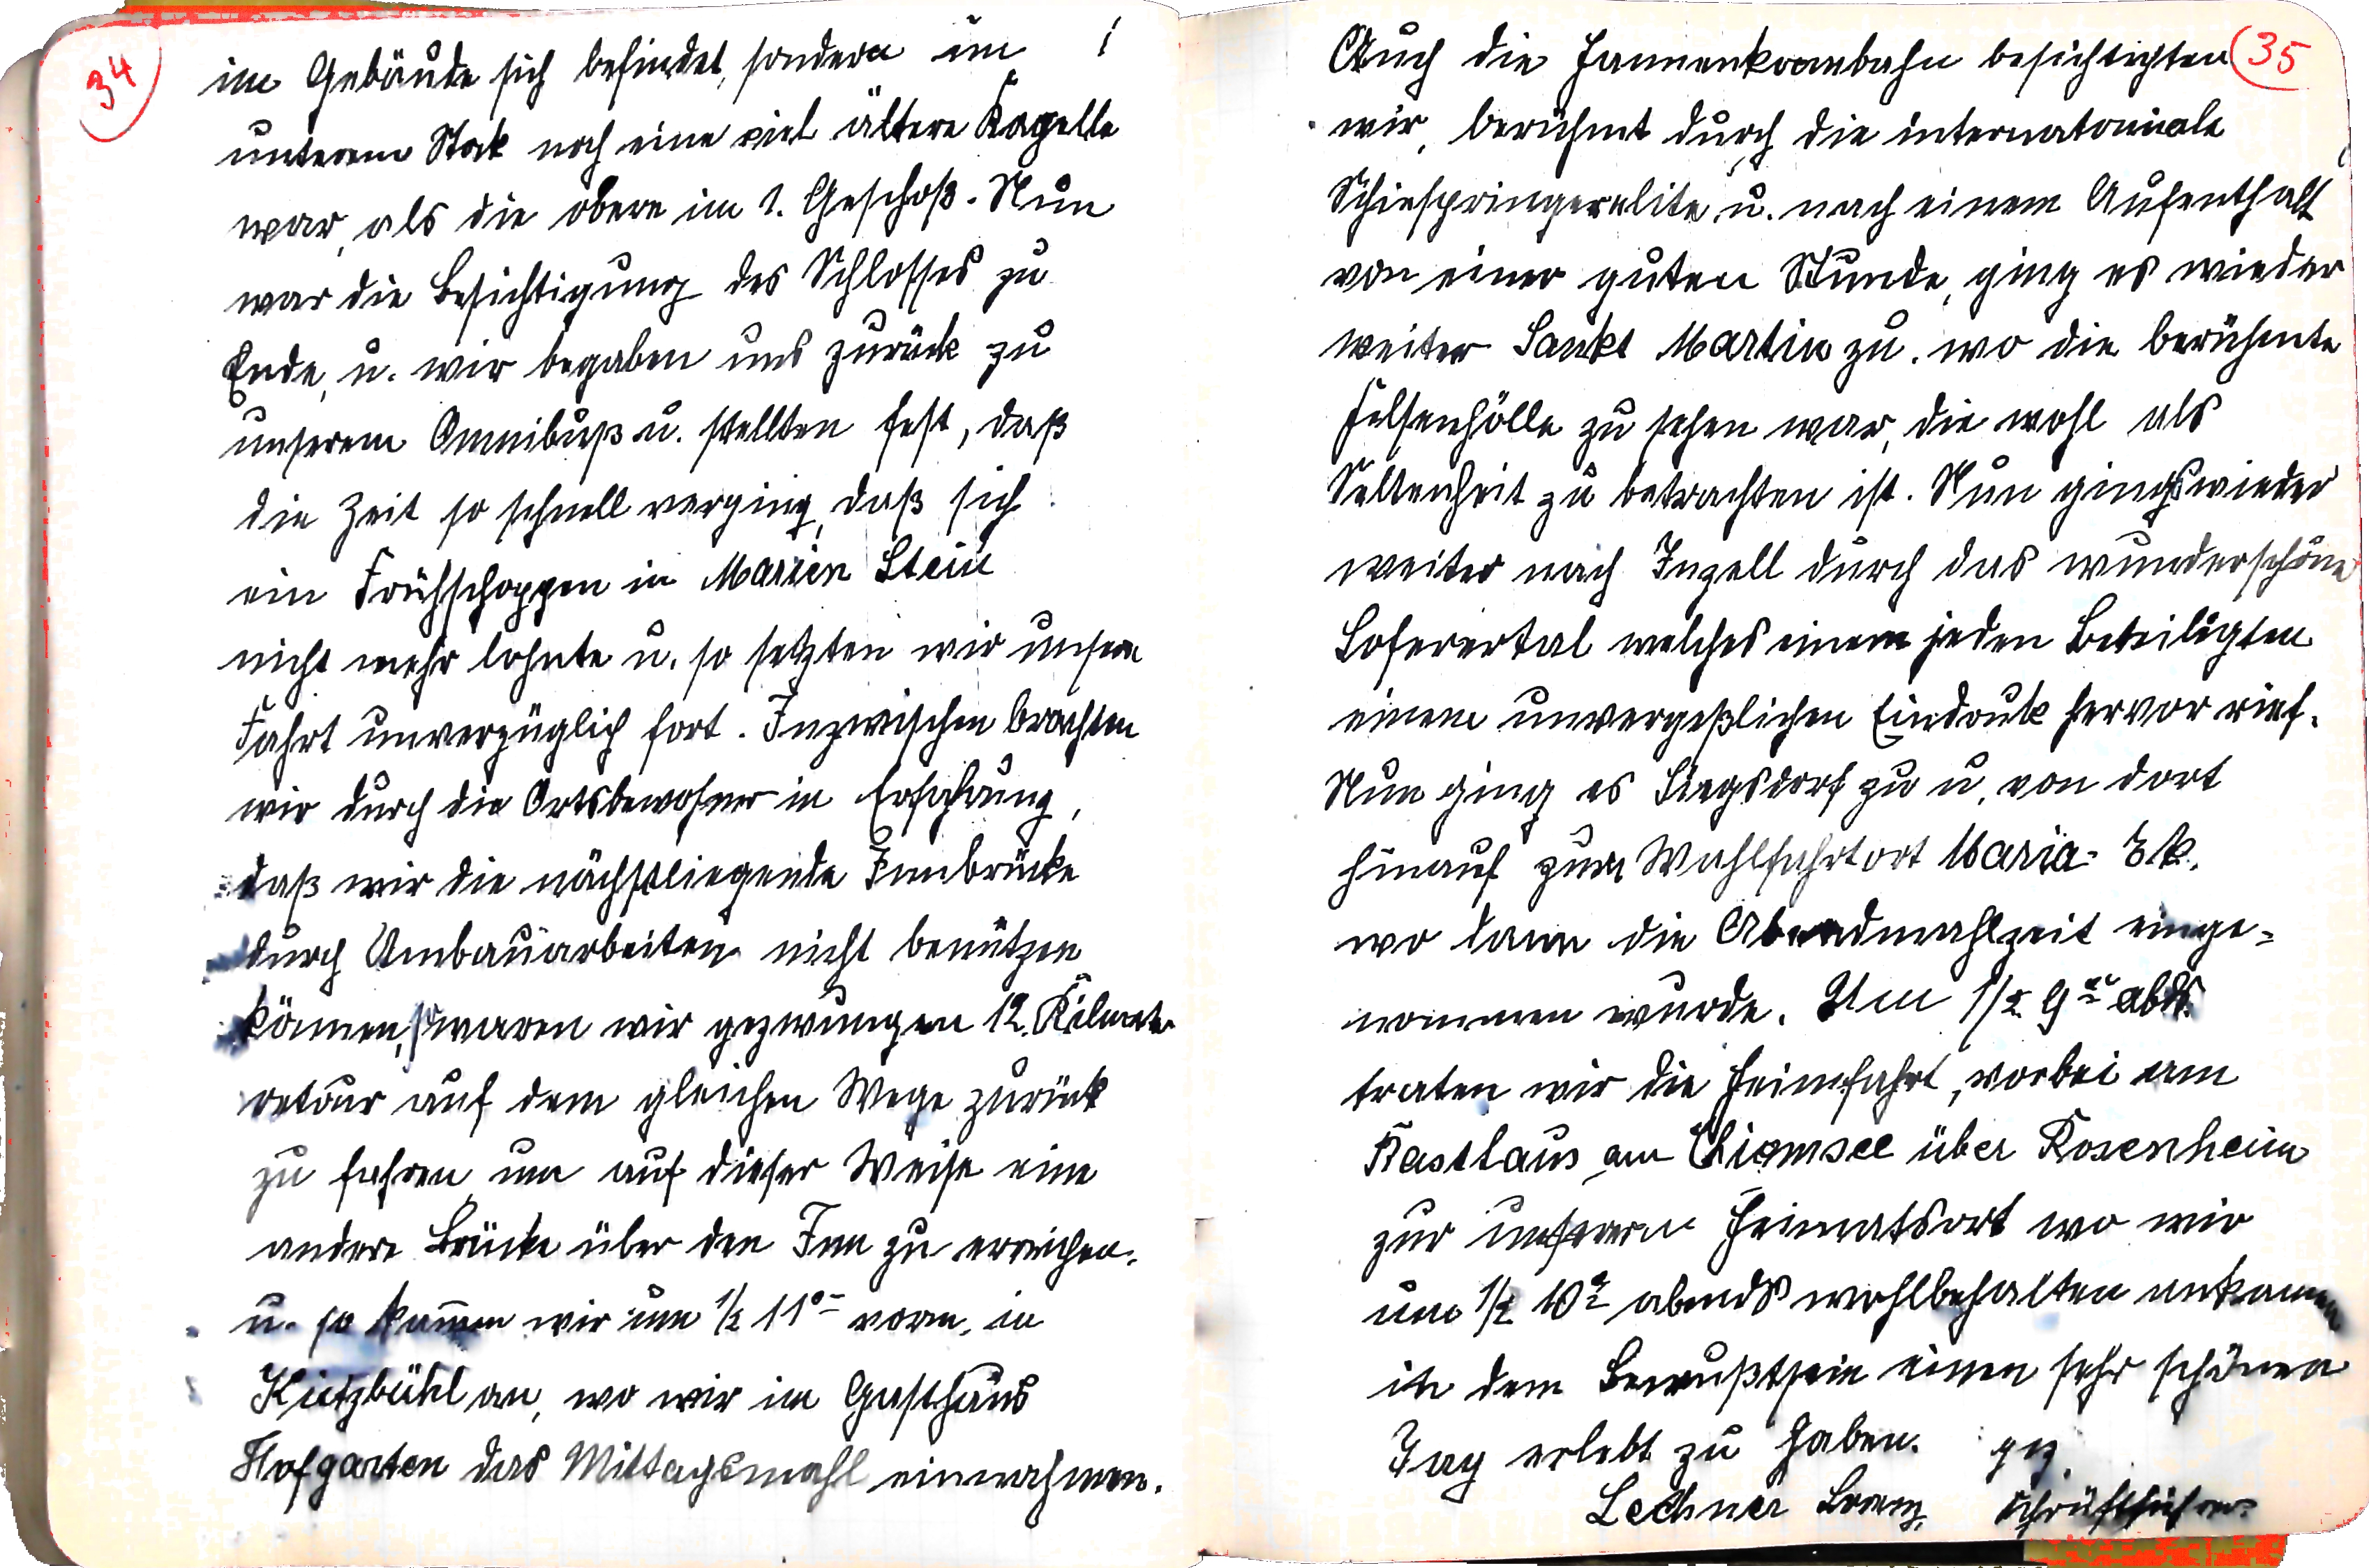 34
im Gebäude sich befindet, sondern im
unterem Stock noch eine viel ältere Kapelle
war, als die obere im 1. Geschoß. Nun
war die Besichtigung des Schlosses zu
Ende, u. wir begaben uns zurück zu
unserem Omnibuß u. stellten fest, daß
die Zeit so schnell verging, daß sich
ein Frühschoppen in Marien Stein
nicht mehr lohnte u. so setzten wir unsere
Fahrt unverzüglich fort. Inzwischen brachten
wir durch die Ortsbewohner in Erfahrung,
daß wir die nächstliegende Innbrücke
durch Umbauarbeiten nicht benützen
können, so waren wir gezwungen 12. Kilometer
retour auf dem gleichen Wege zurück
zu fahren um auf dieser Weise eine
andere Brücke über den Inn zu erreichen.
u. so kammen wir um 1/2 11 vorm. in
Kietzbühl an, wo wir im Gasthaus
Hofgarten das Mittagsmahl einnahmen.
35
Auch die besichtigten
wir, berühmt durch die internatonale
Schiespringerelite, u. nach einem Aufenthalt
von einer guten Stunde, ging es wieder
weiter Sankt Martin zu. wo die berühmte
Felsenhölle zu sehen war, die wohl als
Seltenheit zu betrachten ist. Nun gings wieder
weiter nach Inzell durch das wunderschöne
Loferertal welches einem jeden Beteiligten
einem unvergeßlichen Eindruck hervor rief.
Nun ging es Siegsdorf zu u. von dort
hinauf zum Wahlfahrtort Maria-Ek.
wo dann die Abendmahlzeit einge=
nommen wurde. Um 1/2 9 abds.
traten wir die Heimfahrt, vorbei am
Rasthaus am Chiemsee über Rosenheim
zur unserem Heimatsort wo wir
um 1/2 10 abends wohlbehalten ankamen
in dem Bewußtsein einen sehr schönen
Tag erlebt zu haben. gez.
Lechner Schriftführer